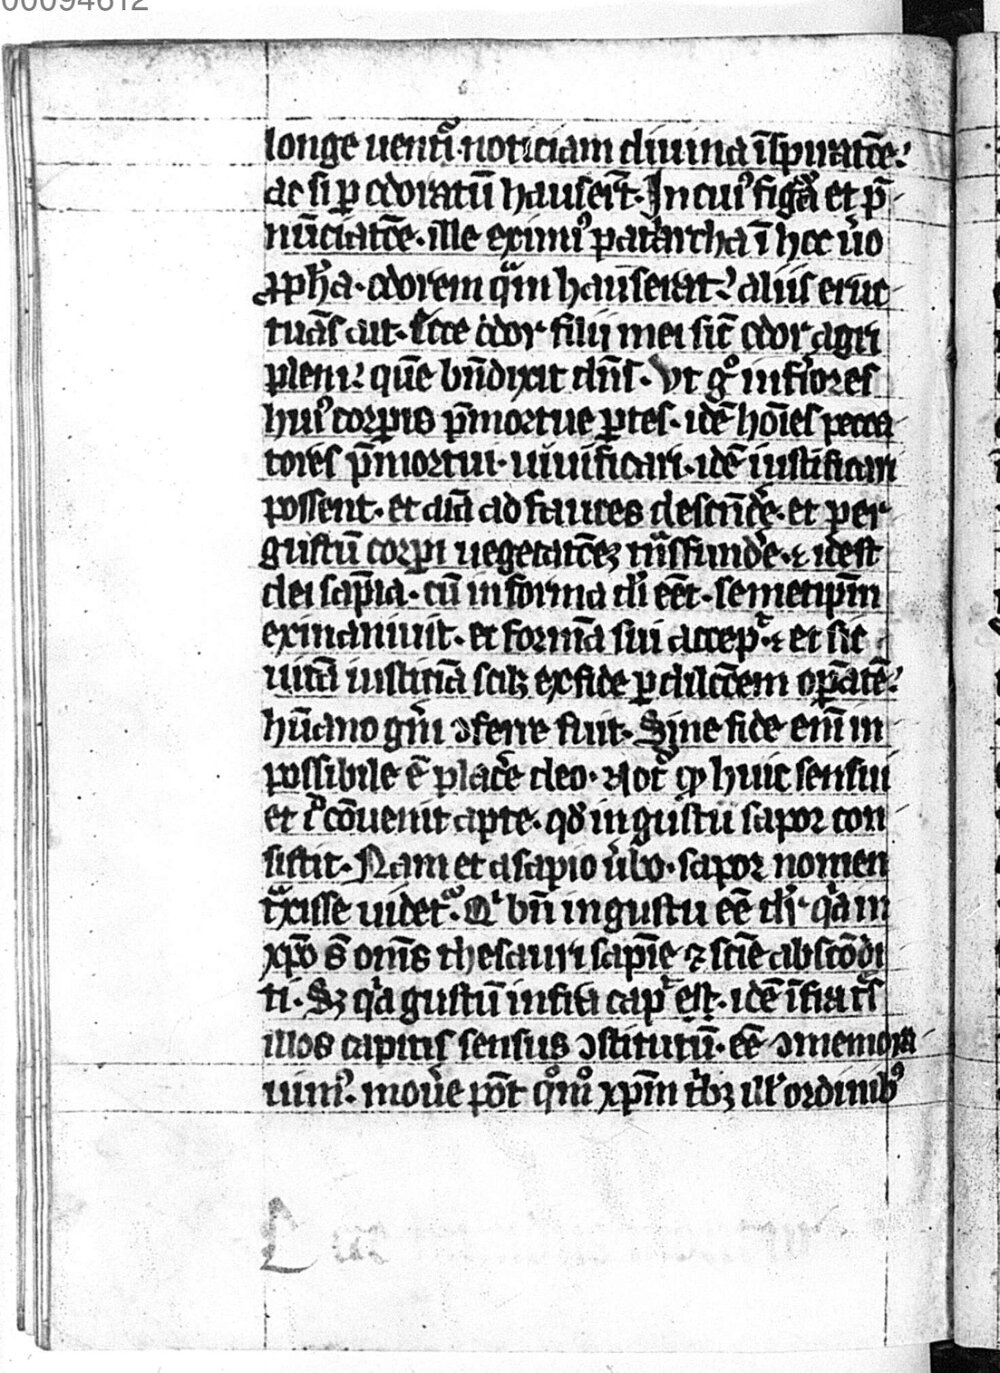 00094612
longe uentͣi noticiam diuina īspiratōe.
ac si ꝑ odoratū hauseīt. In cuiꝰ figͣa et p̄
nūciatōe. ille eximiꝰ patͣarcha ī hoc uͦo
ꝓph̄a. odorem qͣm hauserat. aliis eruc
tuās ait. Ecce odor filij mei sic̄ odor agri
pleni. quē bn̄dixit dn̄s. Vt gͦ inf̄iores
huiꝰ corpis p̄mortue ꝑtes. idē hoīes pecca
tores p̄mortui. uiuificari. idē iustificari
possent. et aīa ad fauces descn̄dēͤ. et per
gustū corpi uegetatōeꝫ tͣnsfundēͤ. ⁊ idest
dei sapīa. cū in forma di eēt. semetip̄m
exinaniuit. et formā sui accepᷓ. ⁊ et sic
uitā iusticiā scilꝫ ex fide ꝑ dilc̄oem oꝑatē.
hūano gn̄i ꝯferre fuit. Sine fide enī in
possibile ē placēͤ deo. Notͣ qꝫ huic sensui
et iͩ cōuenit apte. qđ in gustu sapor con
sistit. Nam et a sapio uͤbo. sapor nomen
tͣxisse uidetᷓ. Et bn̄ in gustu eē dr̄. qͥa in
xp̄o s̄ om̄s thesauri sapīe ⁊ scīe abscōdi
ti. Sꝫ qͥa gustū infiͥ capᷓ est. idē īfiͣ tͥs
illos capitis sensus ꝯstitutū. eē ꝯmemora
uimꝰ. mouēͤ pōt qͦmͦ xp̄m tͥbꝫ ill̄ ordinibꝰ